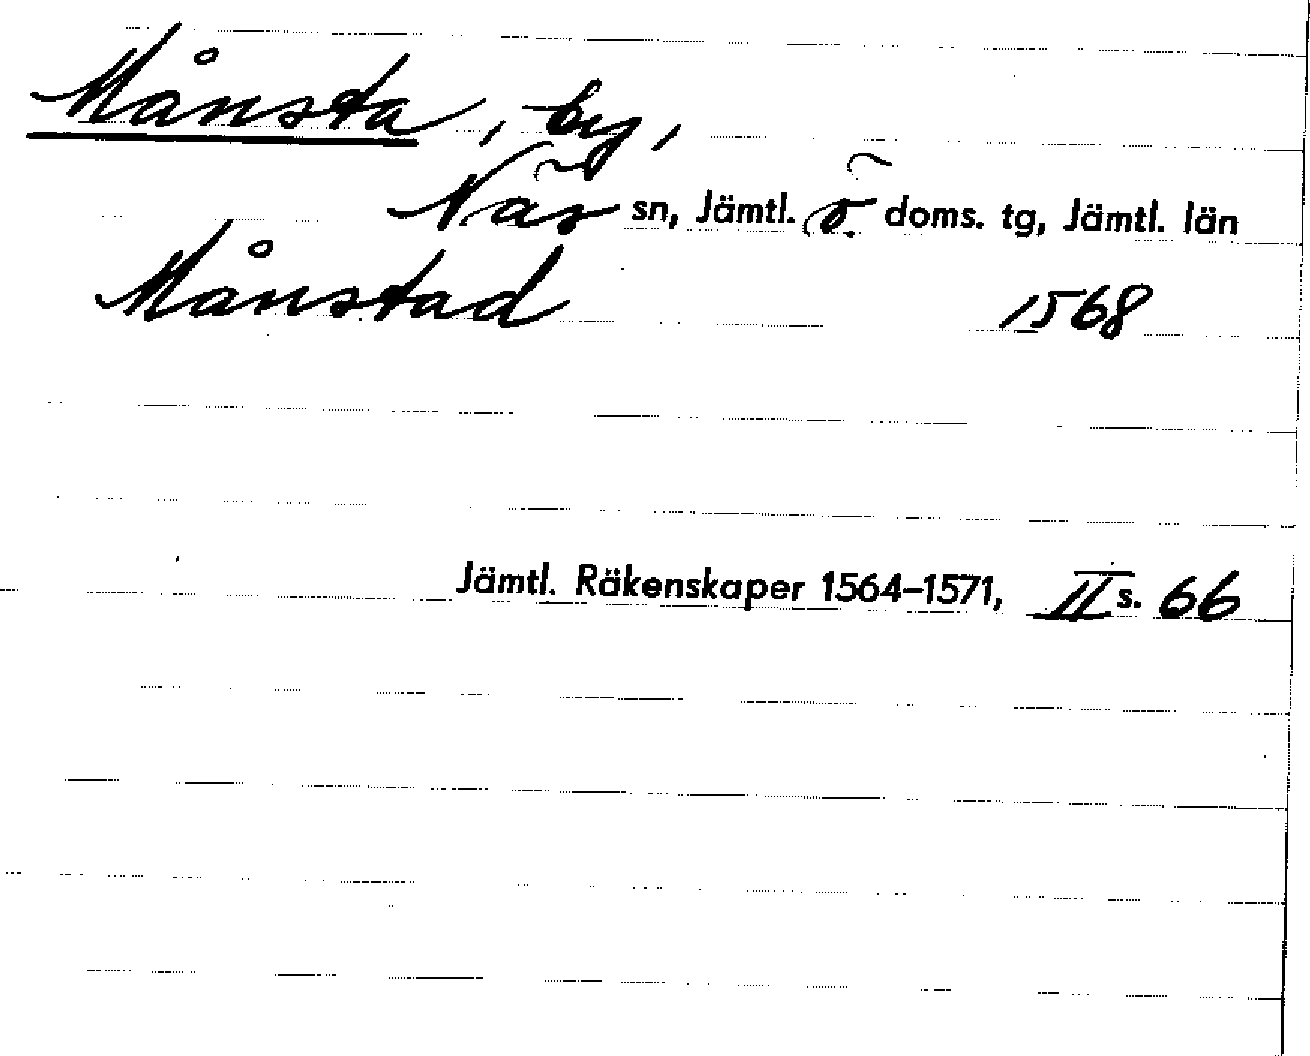 Månsta, by,
Näs sn, Jämtl. ö. doms. tg, Jämtl. län
Månstad 1568
Jämtl. Räkenskaper 1564–1571, II s. 66